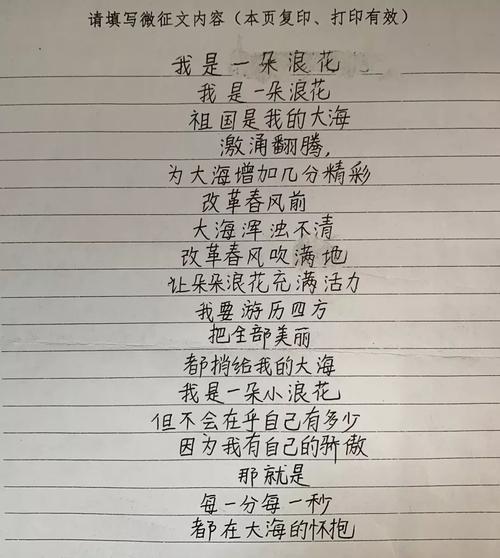 请填写微征文内容（本页复印、打印有效）
我是一朵浪花
我是一朵浪花
祖国是我的大海
激涌翻腾，
为大海增加几分精彩
改革春风前
大海浑浊不清
改革春风吹满地
让朵朵浪花充满活力
我要游历四方
把全部美丽
都捎给我的大海
我是一朵小浪花
但不会在乎自己有多少
因为我有自己的骄傲
那就是
每一分每一秒
都在大海的怀抱